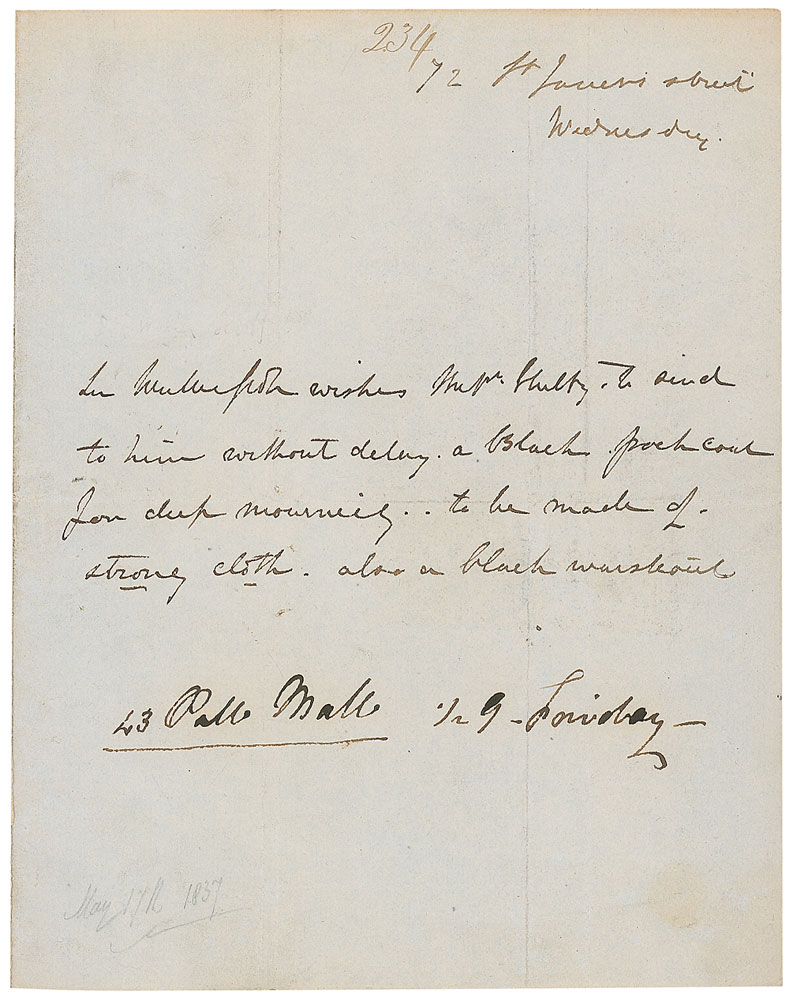 234
72 St James's street
Wednesday.
wishes Messrs. Stultz. to send
to him without delay. a Black frock coat
for deep mourning.. to be made of.
strong cloth. also a black waistcoat
43 Pall Mall 1/2 9 - Friday -
May 17th 1837